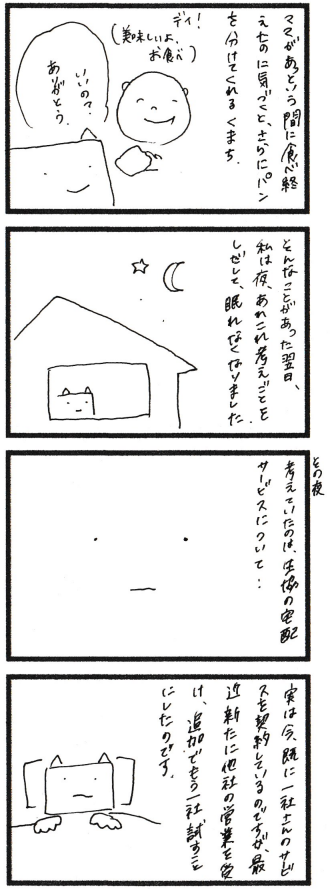 ママがあっという間に食べ終
えたのに気づくと、さらにパン
を分けてくれるくまち。
デイ!
(美味しいよ、
お食べ)
いいの?
ありがとう。
そんなことがあった翌日、
私は夜、あれこれ考えごとを
しだして、眠れなくなりました。
その夜
考えていたのは、生協の宅配
サービスについて…
実は今、既に一社さんのサービ
スを契約しているのですが、最
近新たに他社の営業を受
け、追加でもう一社試すこと
にしたのです。